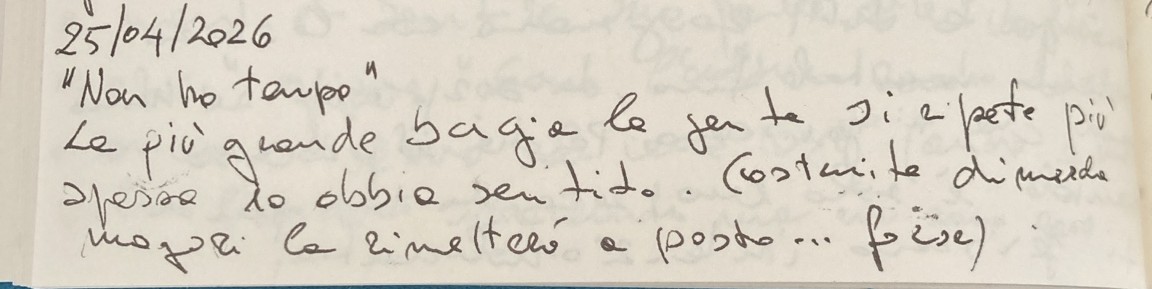 25/04/2026
"Non ho tempo"
La più grande bugia la gente si ripete più
spesso io abbia sentito. (costruita di merda
magari la rimetterò a posto... forse)